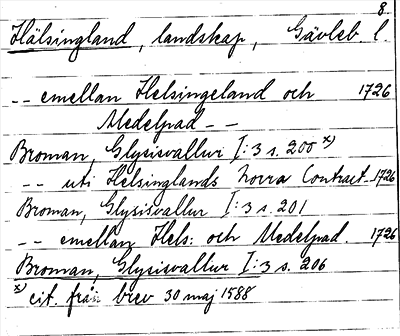 8.
Hälsingland, landskap, Gävleb. l.
-- emellan Helsingeland och 1726
Medelpad --
Broman, Glysisvallur I:3 s. 200 x)
-- uti Helsinglands Norra Contract. 1726
Broman, Glysisvallur I:3 s. 201
-- emellan Hels: och Medelpad. 1726
Broman, Glysisvallur I:3 s. 206
x) cit. från brev 30 maj 1588